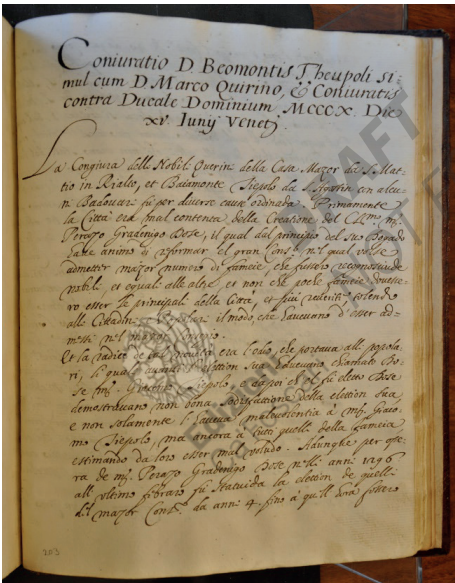 Coniuratio D. Beomontis Theupoli si=
mul cum D. Marco Quirino, & Coniuratis
contra Ducale Dominium MCCCX. Die
xv. Iunij Venet.
La Congiura delli Nobili Querini della Casa Mazor da S. Mat
tio in Rialto, et Baiamonte Tiepolo da S. Agustin con alcu
ni Badoueri fù per diverse cause ordinata. Primamente
la Città era mal contenta della Creatione del
Perazo Gradenigo Dose, il qual dal principio del suo Dogado
have animo di reformar el gran Cons. nel qual
admetter mazor numero di fameie, che fussero
nobili, et equali alle altre et non che poche fameie
ro esser le principali della Città, et più reverite
alli Cittadini il modo, che havevano d'esser ad=
messi nel mazor Conseio.
Et la radice de era l'odio, che portava alli popola
ri, li quali avanti l'elettion sua volevano chiamato Do=
se Tiepolo, e dapoi ch'el fù eletto Dose
demostravano non bona satisfattione della elettion sua,
e non solamente malevolentia à Giaco=
mo Tiepolo, ma ancora à tutti quelli della fameia
estimando da loro esser mal voludo. Adunque per ope
ra de Perazo Gradenigo Dose nelli anni 1296
all' ultimo febraro fù statuida la elettion de quelli
del mazor Cons. da anni 4 fino à quell' hora
203
DRAFT